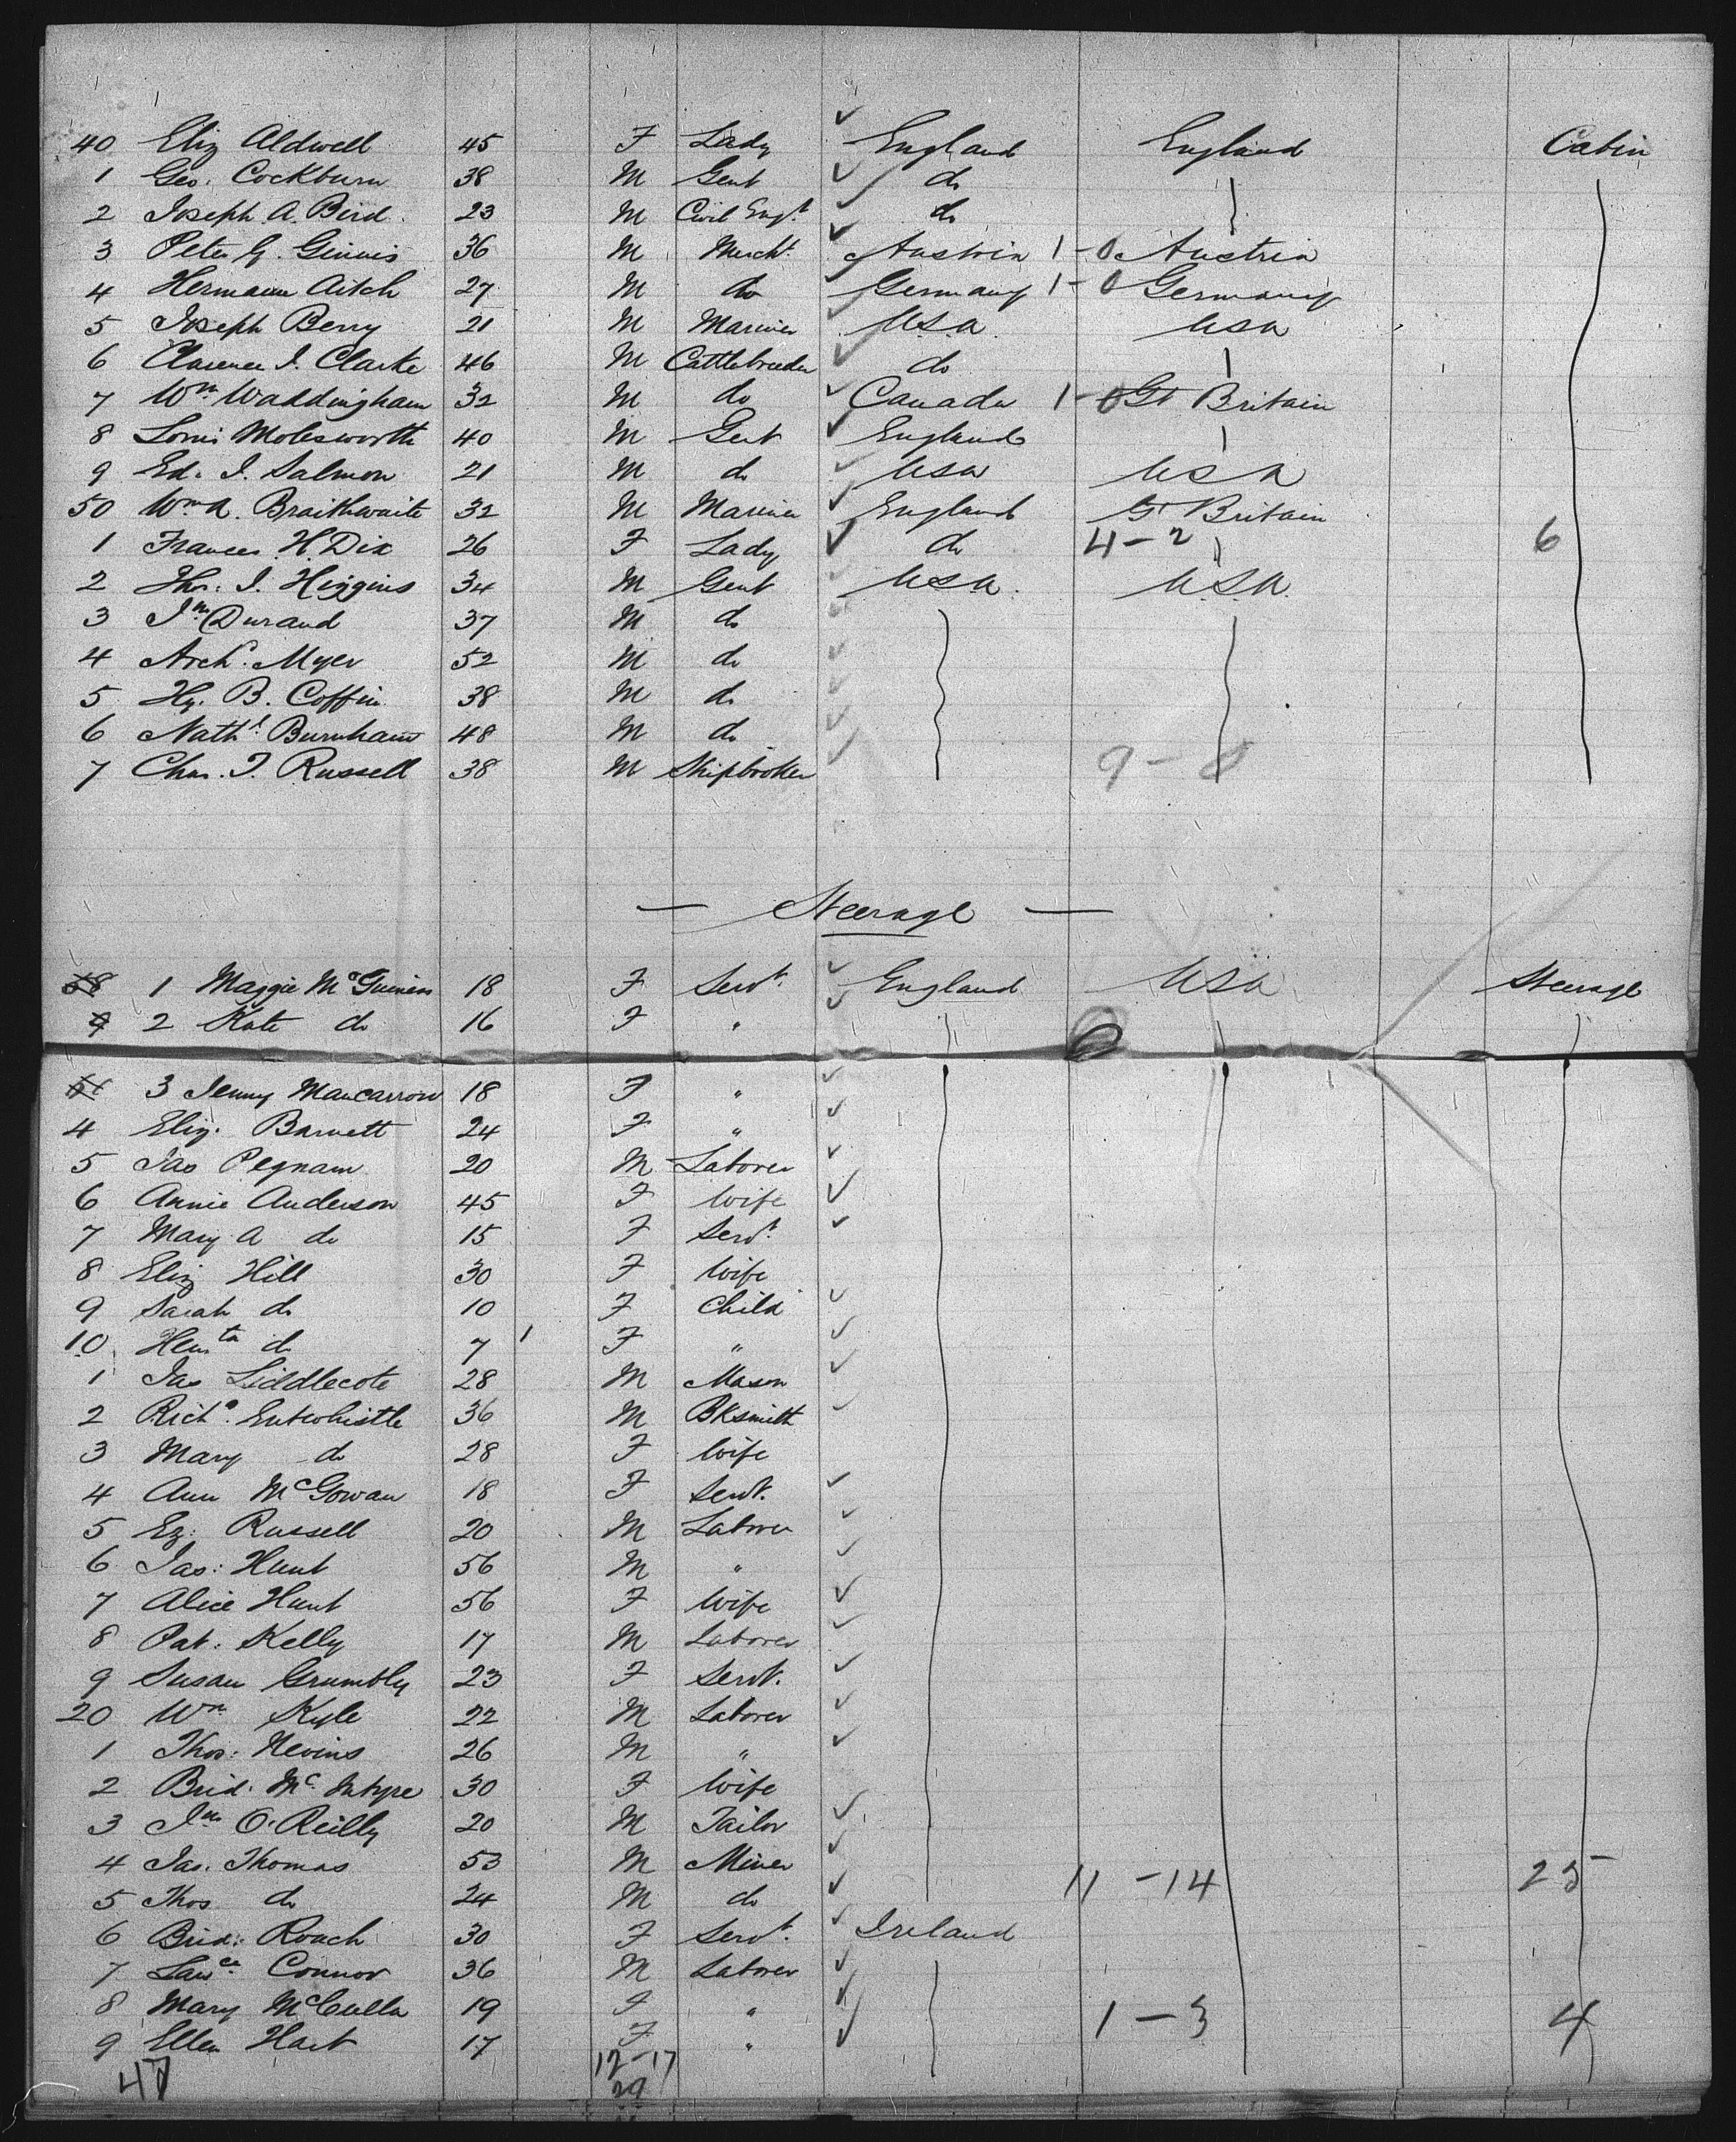 40 Eliz Aldwell 45 F Lady England England Cabin
1 Geo. Cockburn 38 M Gent do
2 Joseph A. Bird. 23 M Civil Engr. do
3 Peter G. Ginnis 36 M Mercht. Austria 1-0 Austria
4 Hermann Aitch 27 M do Germany 1-0 Germany
5 Joseph Berry 21 M Mariner U.S.A. USA
6 Clarence J. Clarke 46 M Cattlebreeder do
7 Wm Waddingham 32 M do Canada 1-0 Gt Britain
8 Louis Molesworth 40 M Gent England
9 Ed. J. Salmon 21 M do USA USA
50 Wm A. Braithwaite 32 M Mariner England Gt Britain
1 Frances H. Dix 26 F Lady do 4-2 6
2 Thos. J. Higgins 34 M Gent U.S.A. U.S.A.
3 Jno Durand 37 M do
4 Archd. Myer 52 M do
5 Hy. B. Coffin 38 M do
6 Nathl. Burnham 48 M do
7 Chas. T. Russell 38 M Shipbroker 9-8
— Steerage —
58 1 Maggie McGuiness 18 F Servt. England USA Steerage
9 2 Kate do 16 F "
3 Jenny Mancarrow 18 F "
4 Eliz. Barnett 24 F "
5 Jas Pegnam 20 M Laborer
6 Annie Anderson 45 F Wife
7 Mary A do 15 F Servt.
8 Eliz Hill 30 F Wife
9 Sarah do 10 F Child
10 Henta do 7 1 F "
1 Jas Liddlecote 28 M Mason
2 Richd. Entwhistle 36 M Bksmith
3 Mary do 28 F Wife
4 Ann McGowan 18 F Servt.
5 Ez: Russell 20 M Laborer
6 Jas: Hunt 56 M "
7 Alice Hunt 56 F Wife
8 Pat: Kelly 17 M Laborer
9 Susan Grumbly 23 F Servt.
20 Wm Kyle 22 M Laborer
1 Thos: Nevins 26 M "
2 Brid. McIntyre 30 F Wife
3 Jno O'Reilly 20 M Tailor
4 Jas. Thomas 53 M Miner 11-14 25
5 Thos do 24 M do
6 Brid: Roach 30 F Servt. Ireland
7 Lawce. Connor 36 M Laborer
8 Mary McCulla 19 F " 1-3 4
9 Ellen Hart 17 F "
47 12-17
29